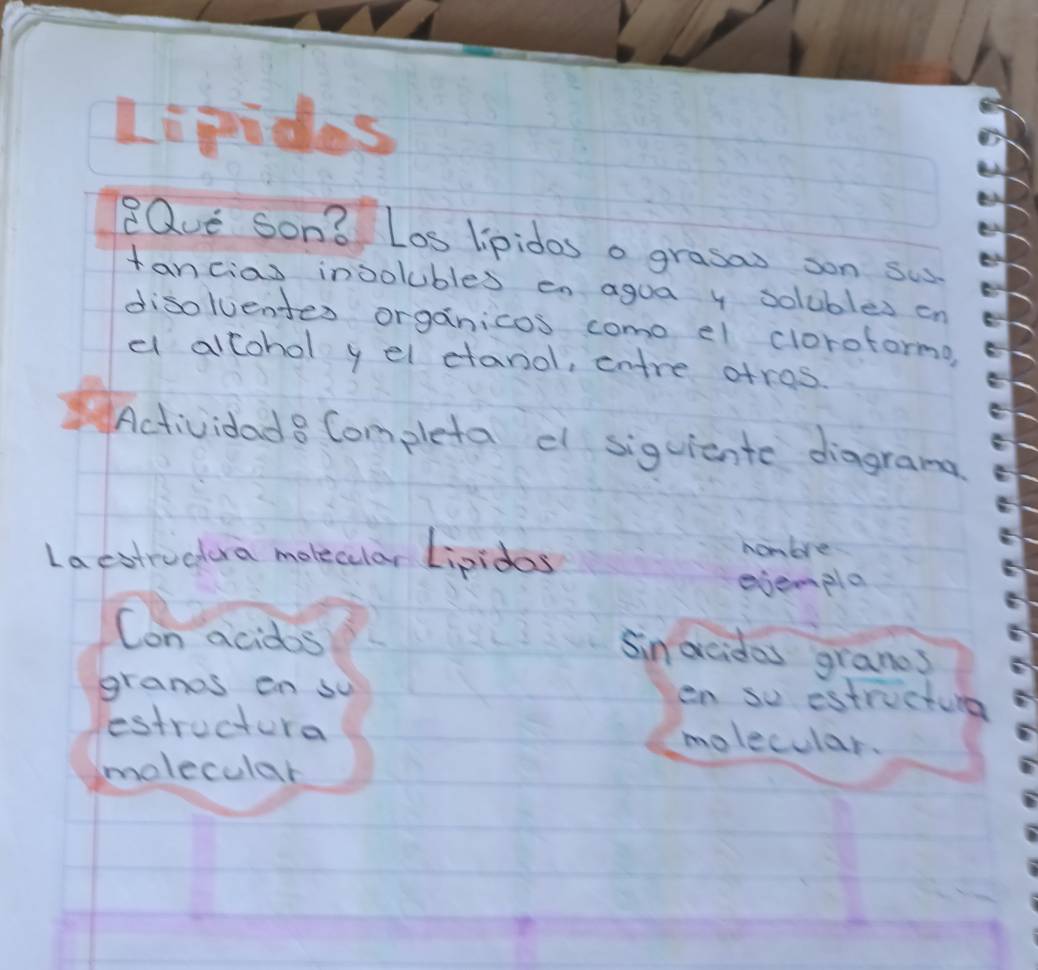 Lipidos
¿Qué son? Los lipidos o grasas son sus-
tancias insolubles en agua y solubles en
disolventes orgánicos como el cloroformo,
el alcohol y el etanol, entre otras.
Actividad: Completa el siguiente diagrama.
La estructura molecular Lipidos
nombre
ejemplo
Con acidos
granos en su
estructura
molecular
Sin acidos granos
en su estructura
molecular.